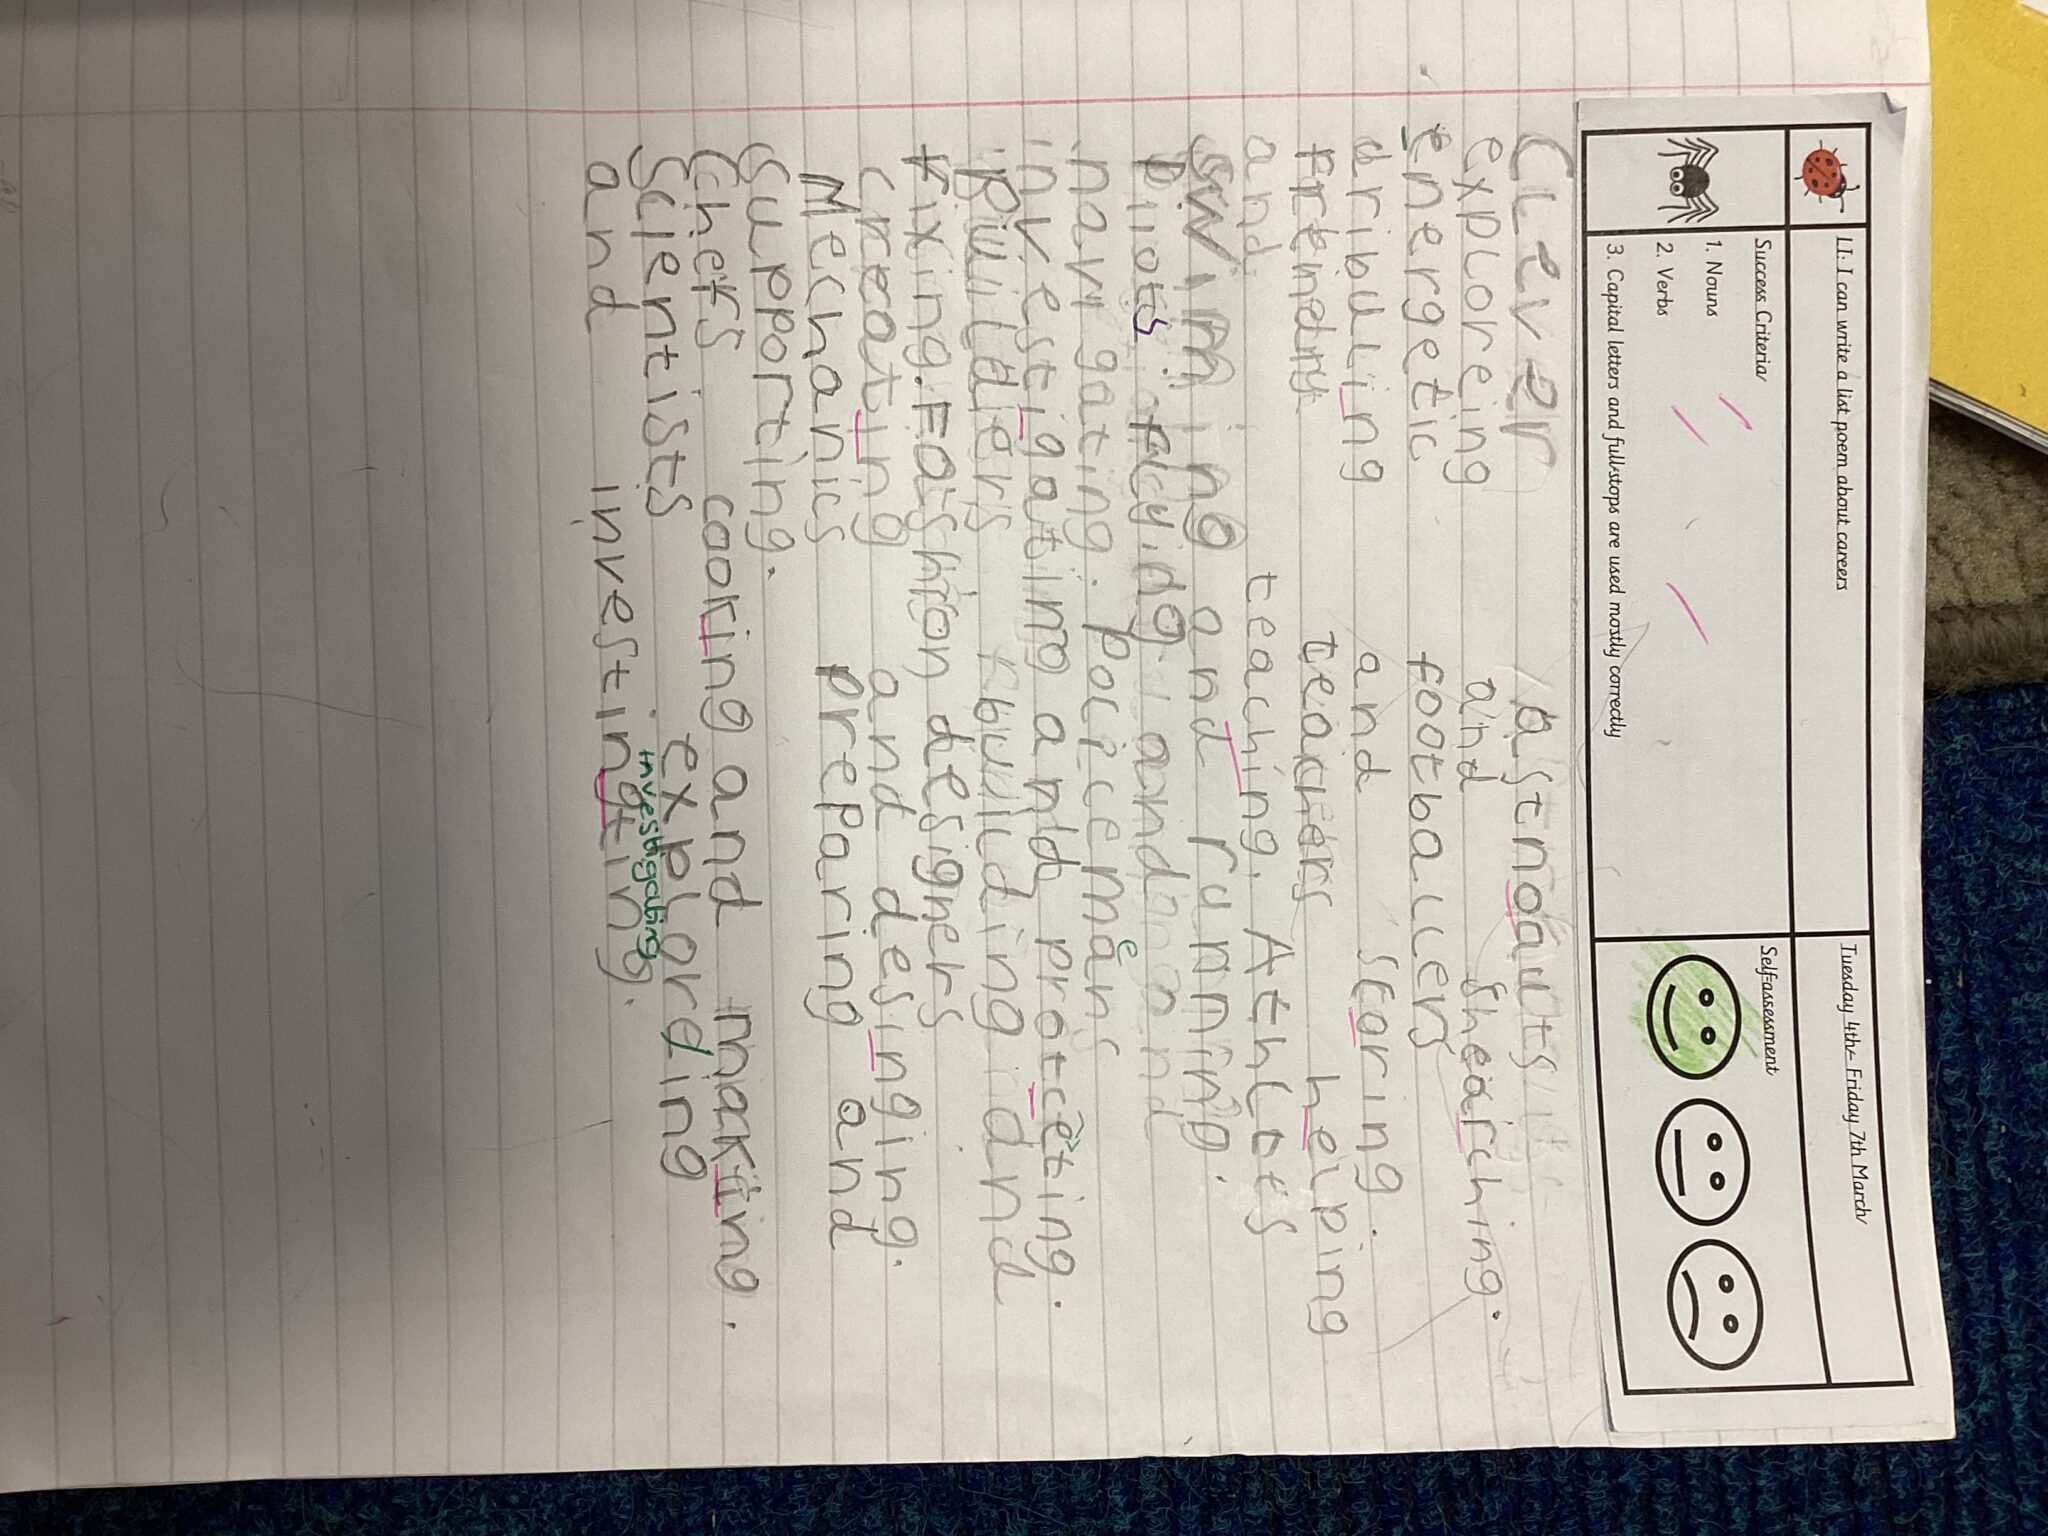 LI: I can write a list poem about careers
Tuesday 4th - Friday 7th March
Success Criteria
1. Nouns
2. Verbs
3. Capital letters and full stops are used mostly correctly
Self-assessment
Clever astnoauts
exploreing and shearching.
energetic footballers
dribuling and scaring.
Friendly teachers helping
and teaching. Athlets
swiming and running.
Piiots flyidg and
navigating. Policemans
e
investigating and protceting.
Builders building and
fixing. Fashion designers
creating and desinging.
Mechanics preparing and
supporting.
Chefs cooking and making.
Scientists exploreing
investigating
and investingting.